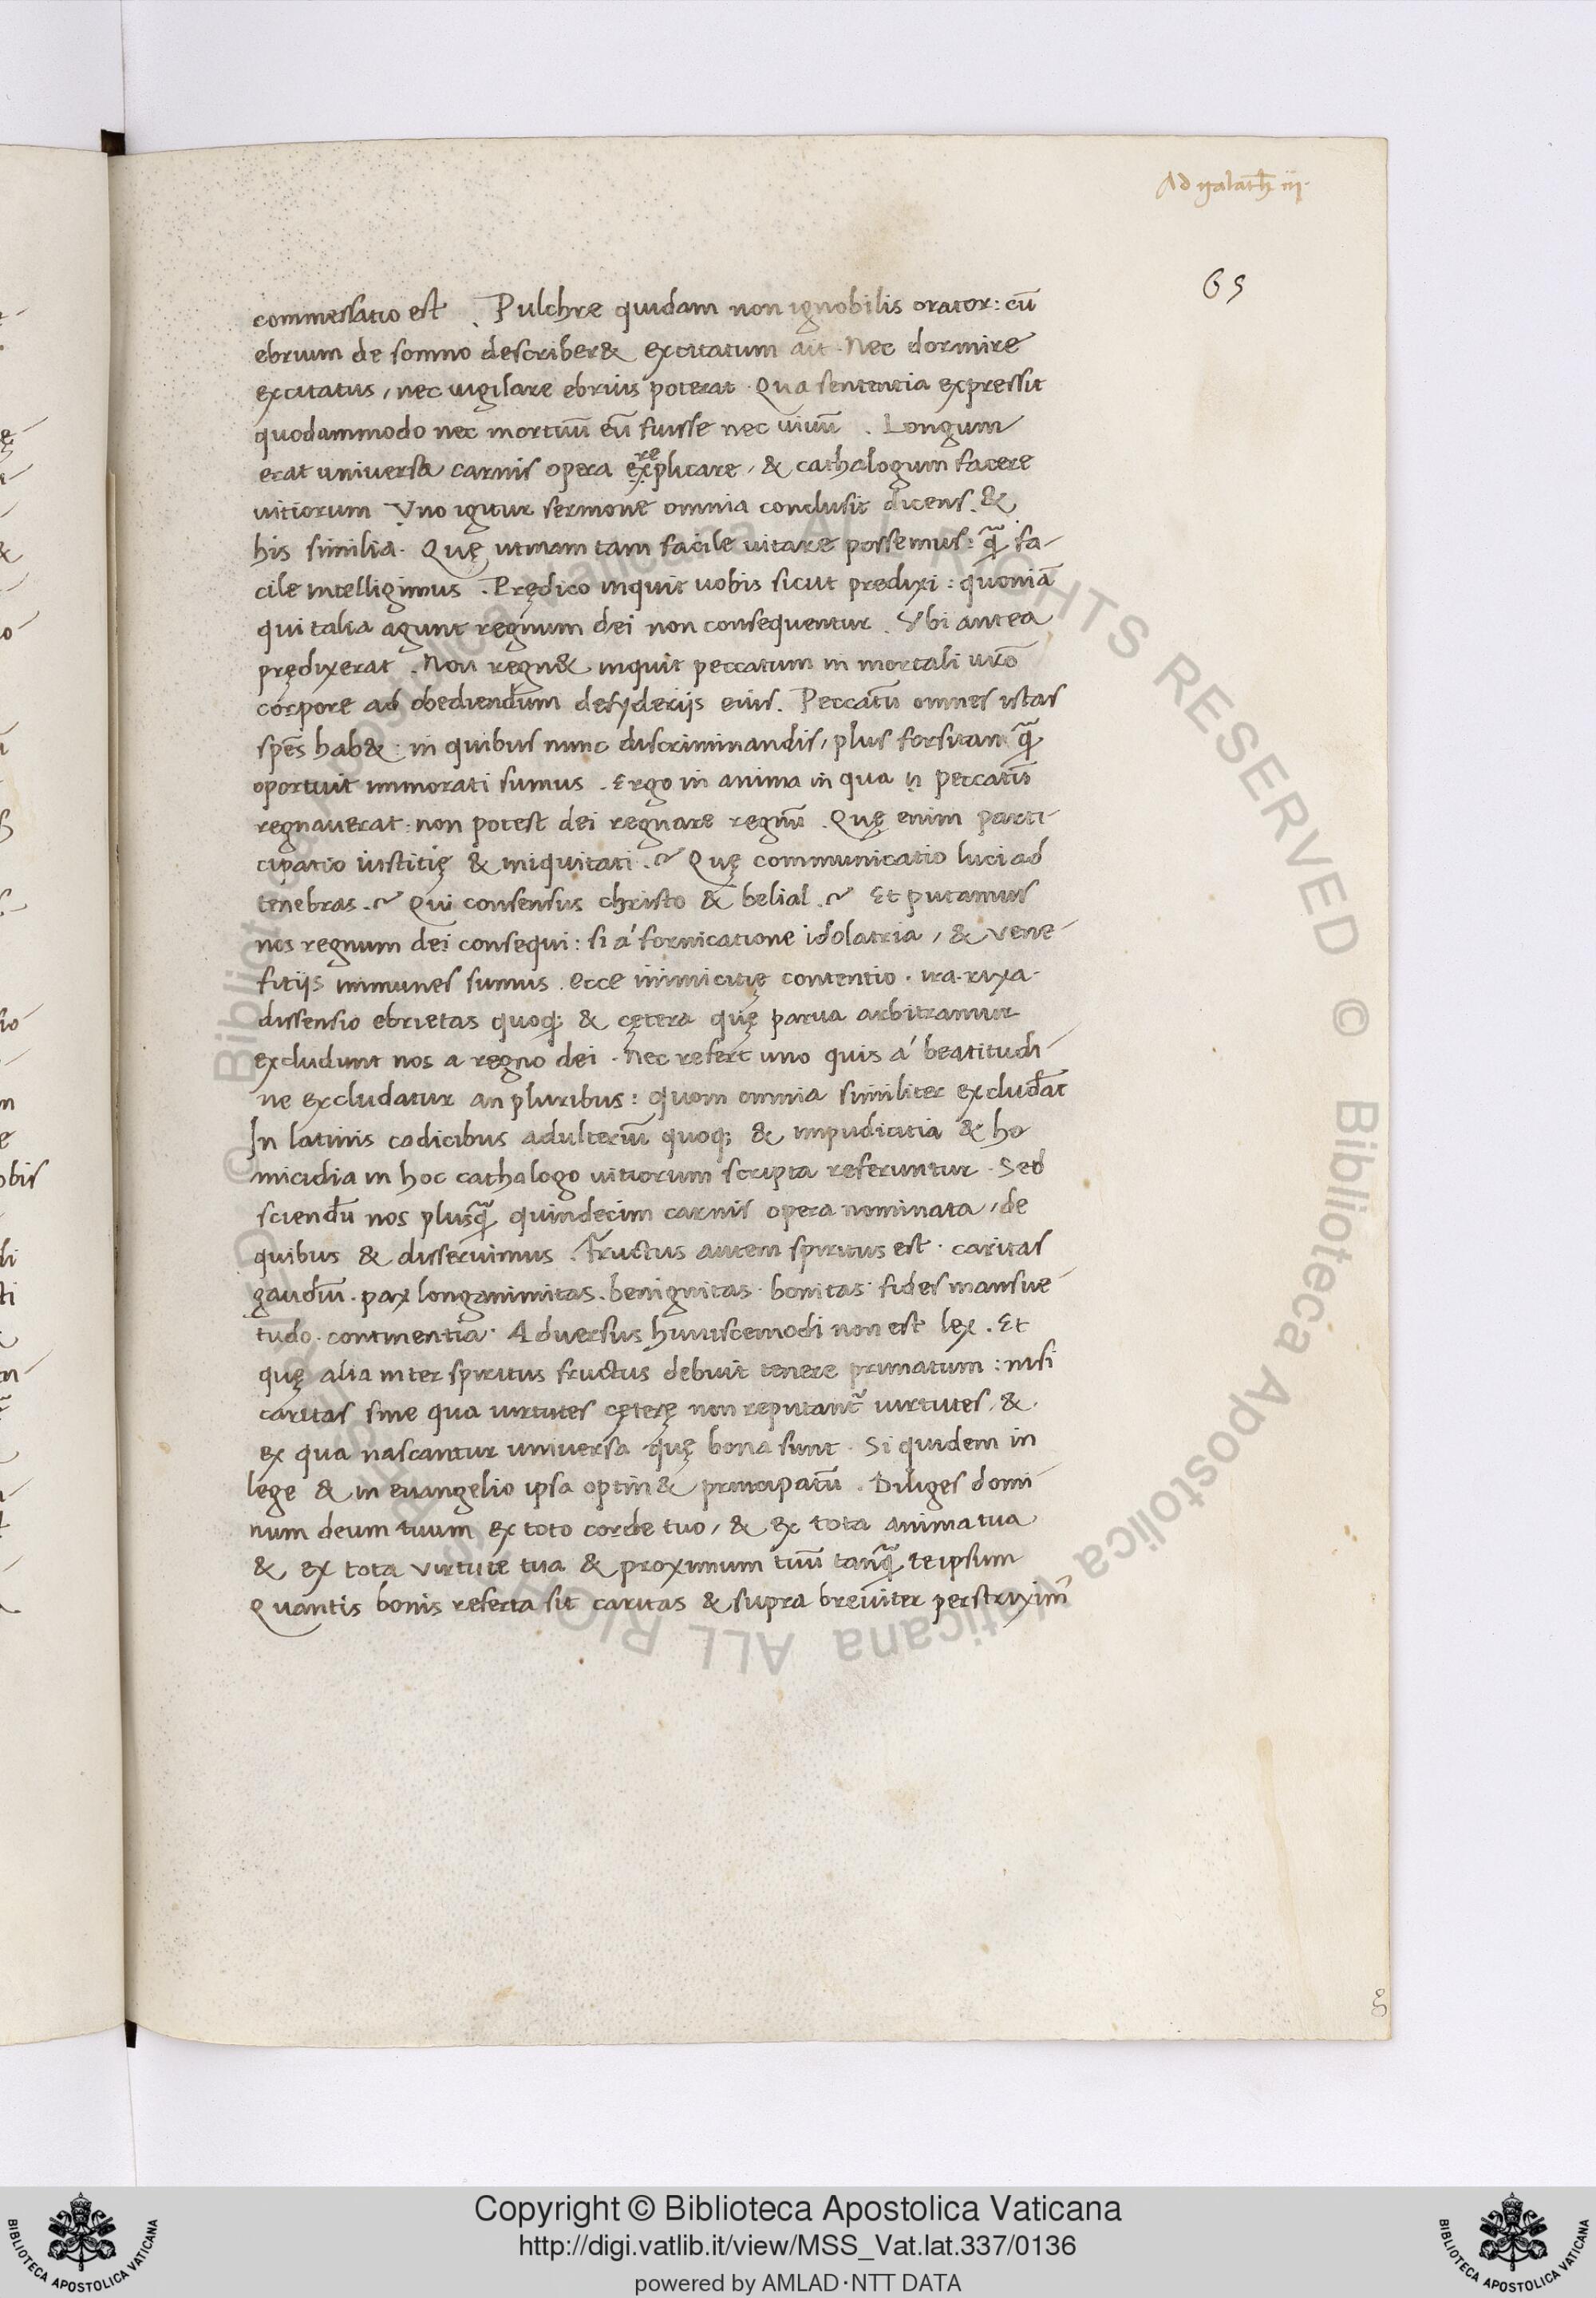 Ad galath̄ iij.
65
commessatio est . Pulchre quidam non ignobilis orator: cū
ebrium de somno describer& excitatum ait . Nec dormire
excitatus, nec uigilare ebrius poterat . Qua sententia expressit
quodammodo nec mortuū eū fuisse nec uiuū . Longum
erat universa carnis opera explicare, & cathalogum facere
re
uitiorum Vno igitur sermone omnia conclusit dicens. &
his similia. Quę utinam tam facile uitare possemus: q̄ fa-
cile intelligimus . Prędico inquit uobis sicut predixi : quoniā
qui talia agunt regnum dei non consequentur . Vbi antea
prędixerat . Non regn& inquit peccatum in mortali ur̄o
corpore ad obediendum desyderijs eius. Peccatū omnes istas
sp̄es hab& : in quibus nunc discriminandis, plus forsitan q̄
oportuit immorati sumus . Ergo in anima in qua ii peccatū
regnauerat: non potest dei regnare regnū . Quę enim parti-
cipatio iustitię & iniquitati .~ Quę communicatio luci ad
tenebras .~ Qui consensus christo & belial .~ Et putamus
nos regnum dei consequi : si á fornicatione idolatria, & vene-
fitijs immunes sumus . ecce inimicitię contentio . ira. rixa.
dissensio ebrietas quoq; & cętera quę parua arbitramur
excludunt nos a regno dei . Nec refert uno quis á beatitudi-
ne excludatur an pluribus : quom omnia similiter excludāt
In latinis codicibus adulteriū quoq; & impudicitia & ho
micidia in hoc cathalogo uitiorum scripta referuntur . Sed
sciendū nos plusq̄ quindecim carnis opera nominata, de
quibus & disseruimus . Fructus autem spiritus est . caritas
gaudiū . pax longanimitas . benignitas . bonitas . fides mansue-
tudo . continentia . Adversus huiuscemodi non est lex . Et
quę alia inter spiritus fructus debuit tenere primatum : nisi
caritas sine qua uirtutes cęterę non reputant̄ uirtutes, &
ex qua nascantur universa quę bona sunt . Si quidem in
lege & in euangelio ipsa optin& principatū . Diliges domi-
num deum tuum ex toto corde tuo, & ex tota anima tua
& ex tota virtute tua & proximum tuū tanq̄ te ipsum
Quantis bonis referta sit caritas & supra breviter perstrixim̄
g
© Biblioteca Apostolica Vaticana ALL RIGHTS RESERVED © Biblioteca Apostolica Vaticana ALL RIGHTS RESERVED
Copyright © Biblioteca Apostolica Vaticana
http://digi.vatlib.it/view/MSS_Vat.lat.337/0136
powered by AMLAD·NTT DATA
BIBLIOTECA APOSTOLICA VATICANA
BIBLIOTECA APOSTOLICA VATICANA